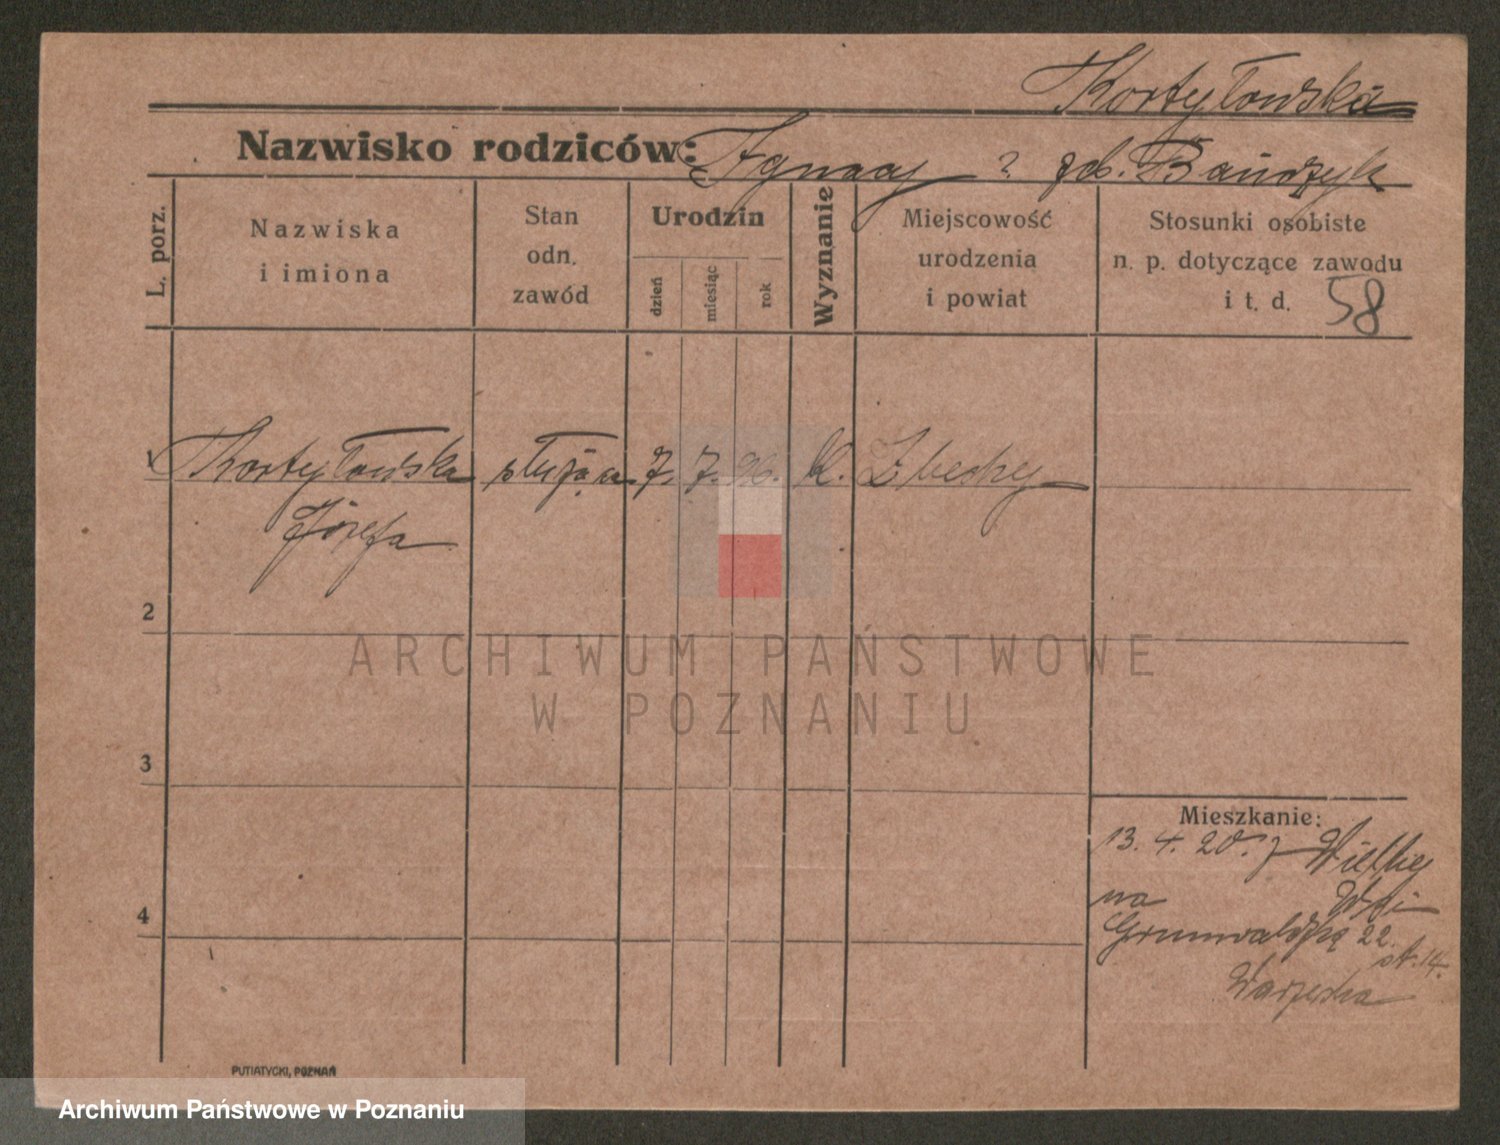 Kortyłowska
Nazwisko rodziców: Ignacy z gb. Bańczyk
L. porz.
Nazwiska
i imiona
Stan
odn.
zawód
Urodzin
dzień
miesiąc
rok
Wyznanie
Miejscowość
urodzenia
i powiat
Stosunki osobiste
n. p. dotyczące zawodu
i t. d. 58
1 Kortyłowska służąca 7. 7. 96. k. Zbechy
Józefa
2
3
4
ARCHIWUM PAŃSTWOWE
W POZNANIU
Mieszkanie:
13. 4. 20. z Wielkiej
na Wsi
Grunwaldzką 22.
st. 14.
PUTIATYCKI, POZNAŃ
Archiwum Państwowe w Poznaniu